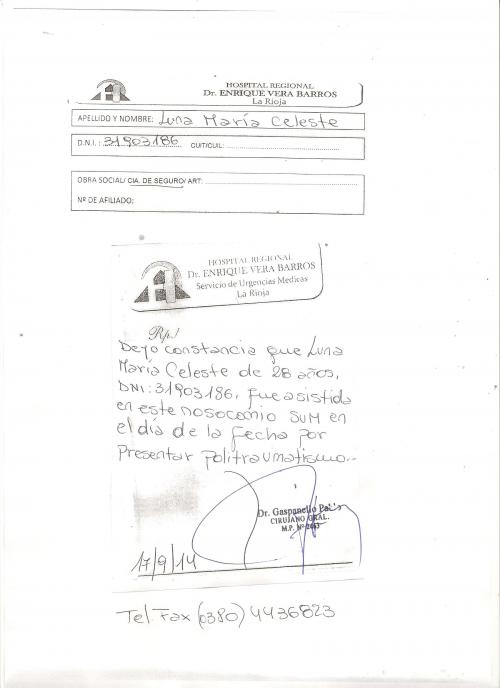 HOSPITAL REGIONAL
Dr. ENRIQUE VERA BARROS
La Rioja
APELLIDO Y NOMBRE: Luna María Celeste
D.N.I.: 31903186 CUIT/CUIL:
OBRA SOCIAL/ CIA. DE SEGURO/ ART:
Nº DE AFILIADO:
HOSPITAL REGIONAL
Dr. ENRIQUE VERA BARROS
Servicio de Urgencias Medicas
La Rioja
Rp./
Dejo constancia que Luna
María Celeste de 28 años,
DNI: 31903186, fue asistida
en este nosocomio SUM en
el día de la fecha por
Presentar politraumatismo.-
Dr. Gaspanello
CIRUJANO GRAL.
M.P. Nº
17/9/14
Tel Fax (0380) 4436823